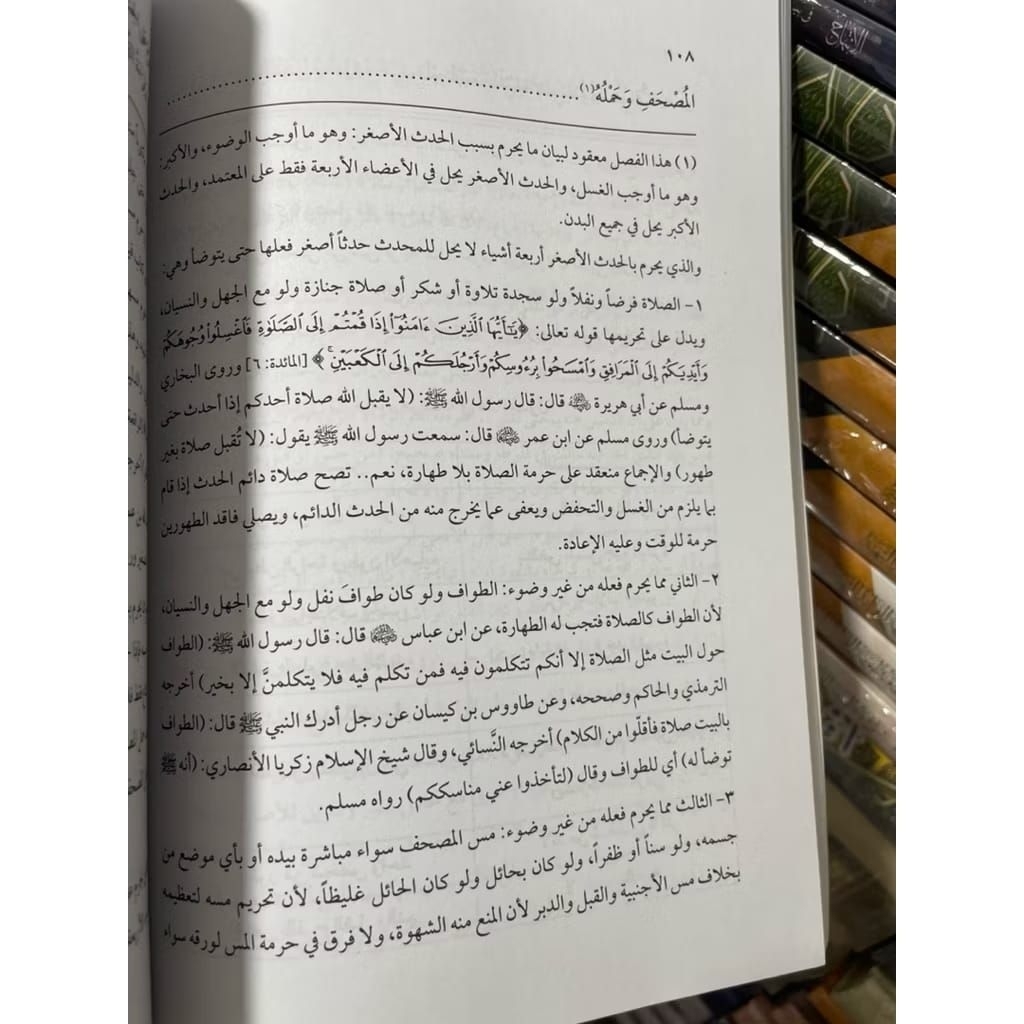 ١٠٨
المُصْحَفِ وَحَمْلُهُ(١)........................................
(١) هذا الفصل معقود لبيان ما يحرم بسبب الحدث الأصغر: وهو ما أوجب الوضوء، والأكبر:
وهو ما أوجب الغسل، والحدث الأصغر يحل في الأعضاء الأربعة فقط على المعتمد، والحدث
الأكبر يحل في جميع البدن.
والذي يحرم بالحدث الأصغر أربعة أشياء لا يحل للمحدث حدثاً أصغر فعلها حتى يتوضأ وهي:
١- الصلاة فرضاً ونفلاً ولو سجدة تلاوة أو شكر أو صلاة جنازة ولو مع الجهل والنسيان،
ويدل على تحريمها قوله تعالى: ﴿يَٰٓأَيُّهَا ٱلَّذِينَ ءَامَنُوٓا۟ إِذَا قُمْتُمْ إِلَى ٱلصَّلَوٰةِ فَٱغْسِلُوا۟ وُجُوهَكُمْ
وَأَيْدِيَكُمْ إِلَى ٱلْمَرَافِقِ وَٱمْسَحُوا۟ بِرُءُوسِكُمْ وَأَرْجُلَكُمْ إِلَى ٱلْكَعْبَيْنِ ۚ﴾ [المائدة: ٦] وروى البخاري
ومسلم عن أبي هريرة ﵁ قال: قال رسول الله ﷺ: (لا يقبل الله صلاة أحدكم إذا أحدث حتى
يتوضأ) وروى مسلم عن ابن عمر ﵁ قال: سمعت رسول الله ﷺ يقول: (لا تُقبل صلاة بغير
طهور) والإجماع منعقد على حرمة الصلاة بلا طهارة، نعم.. تصح صلاة دائم الحدث إذا قام
بما يلزم من الغسل والتحفض ويعفى عما يخرج منه من الحدث الدائم، ويصلي فاقد الطهورين
حرمة للوقت وعليه الإعادة.
٢- الثاني مما يحرم فعله من غير وضوء: الطواف ولو كان طوافَ نفل ولو مع الجهل والنسيان،
لأن الطواف كالصلاة فتجب له الطهارة، عن ابن عباس ﵁ قال: قال رسول الله ﷺ: (الطواف
حول البيت مثل الصلاة إلا أنكم تتكلمون فيه فمن تكلم فيه فلا يتكلمنَّ إلا بخير) أخرجه
الترمذي والحاكم وصححه، وعن طاووس بن كيسان عن رجل أدرك النبي ﷺ قال: (الطواف
بالبيت صلاة فأقلّوا من الكلام) أخرجه النَّسائي، وقال شيخ الإسلام زكريا الأنصاري: (أنه ﷺ
توضأ له) أي للطواف وقال (لتأخذوا عني مناسككم) رواه مسلم.
٣- الثالث مما يحرم فعله من غير وضوء: مس المصحف سواء مباشرة بيده أو بأي موضع من
جسمه، ولو سناً أو ظفراً، ولو كان بحائل ولو كان الحائل غليظاً، لأن تحريم مسه لتعظيمه
بخلاف مس الأجنبية والقبل والدبر لأن المنع منه الشهوة، ولا فرق في حرمة المس لورقه سواء